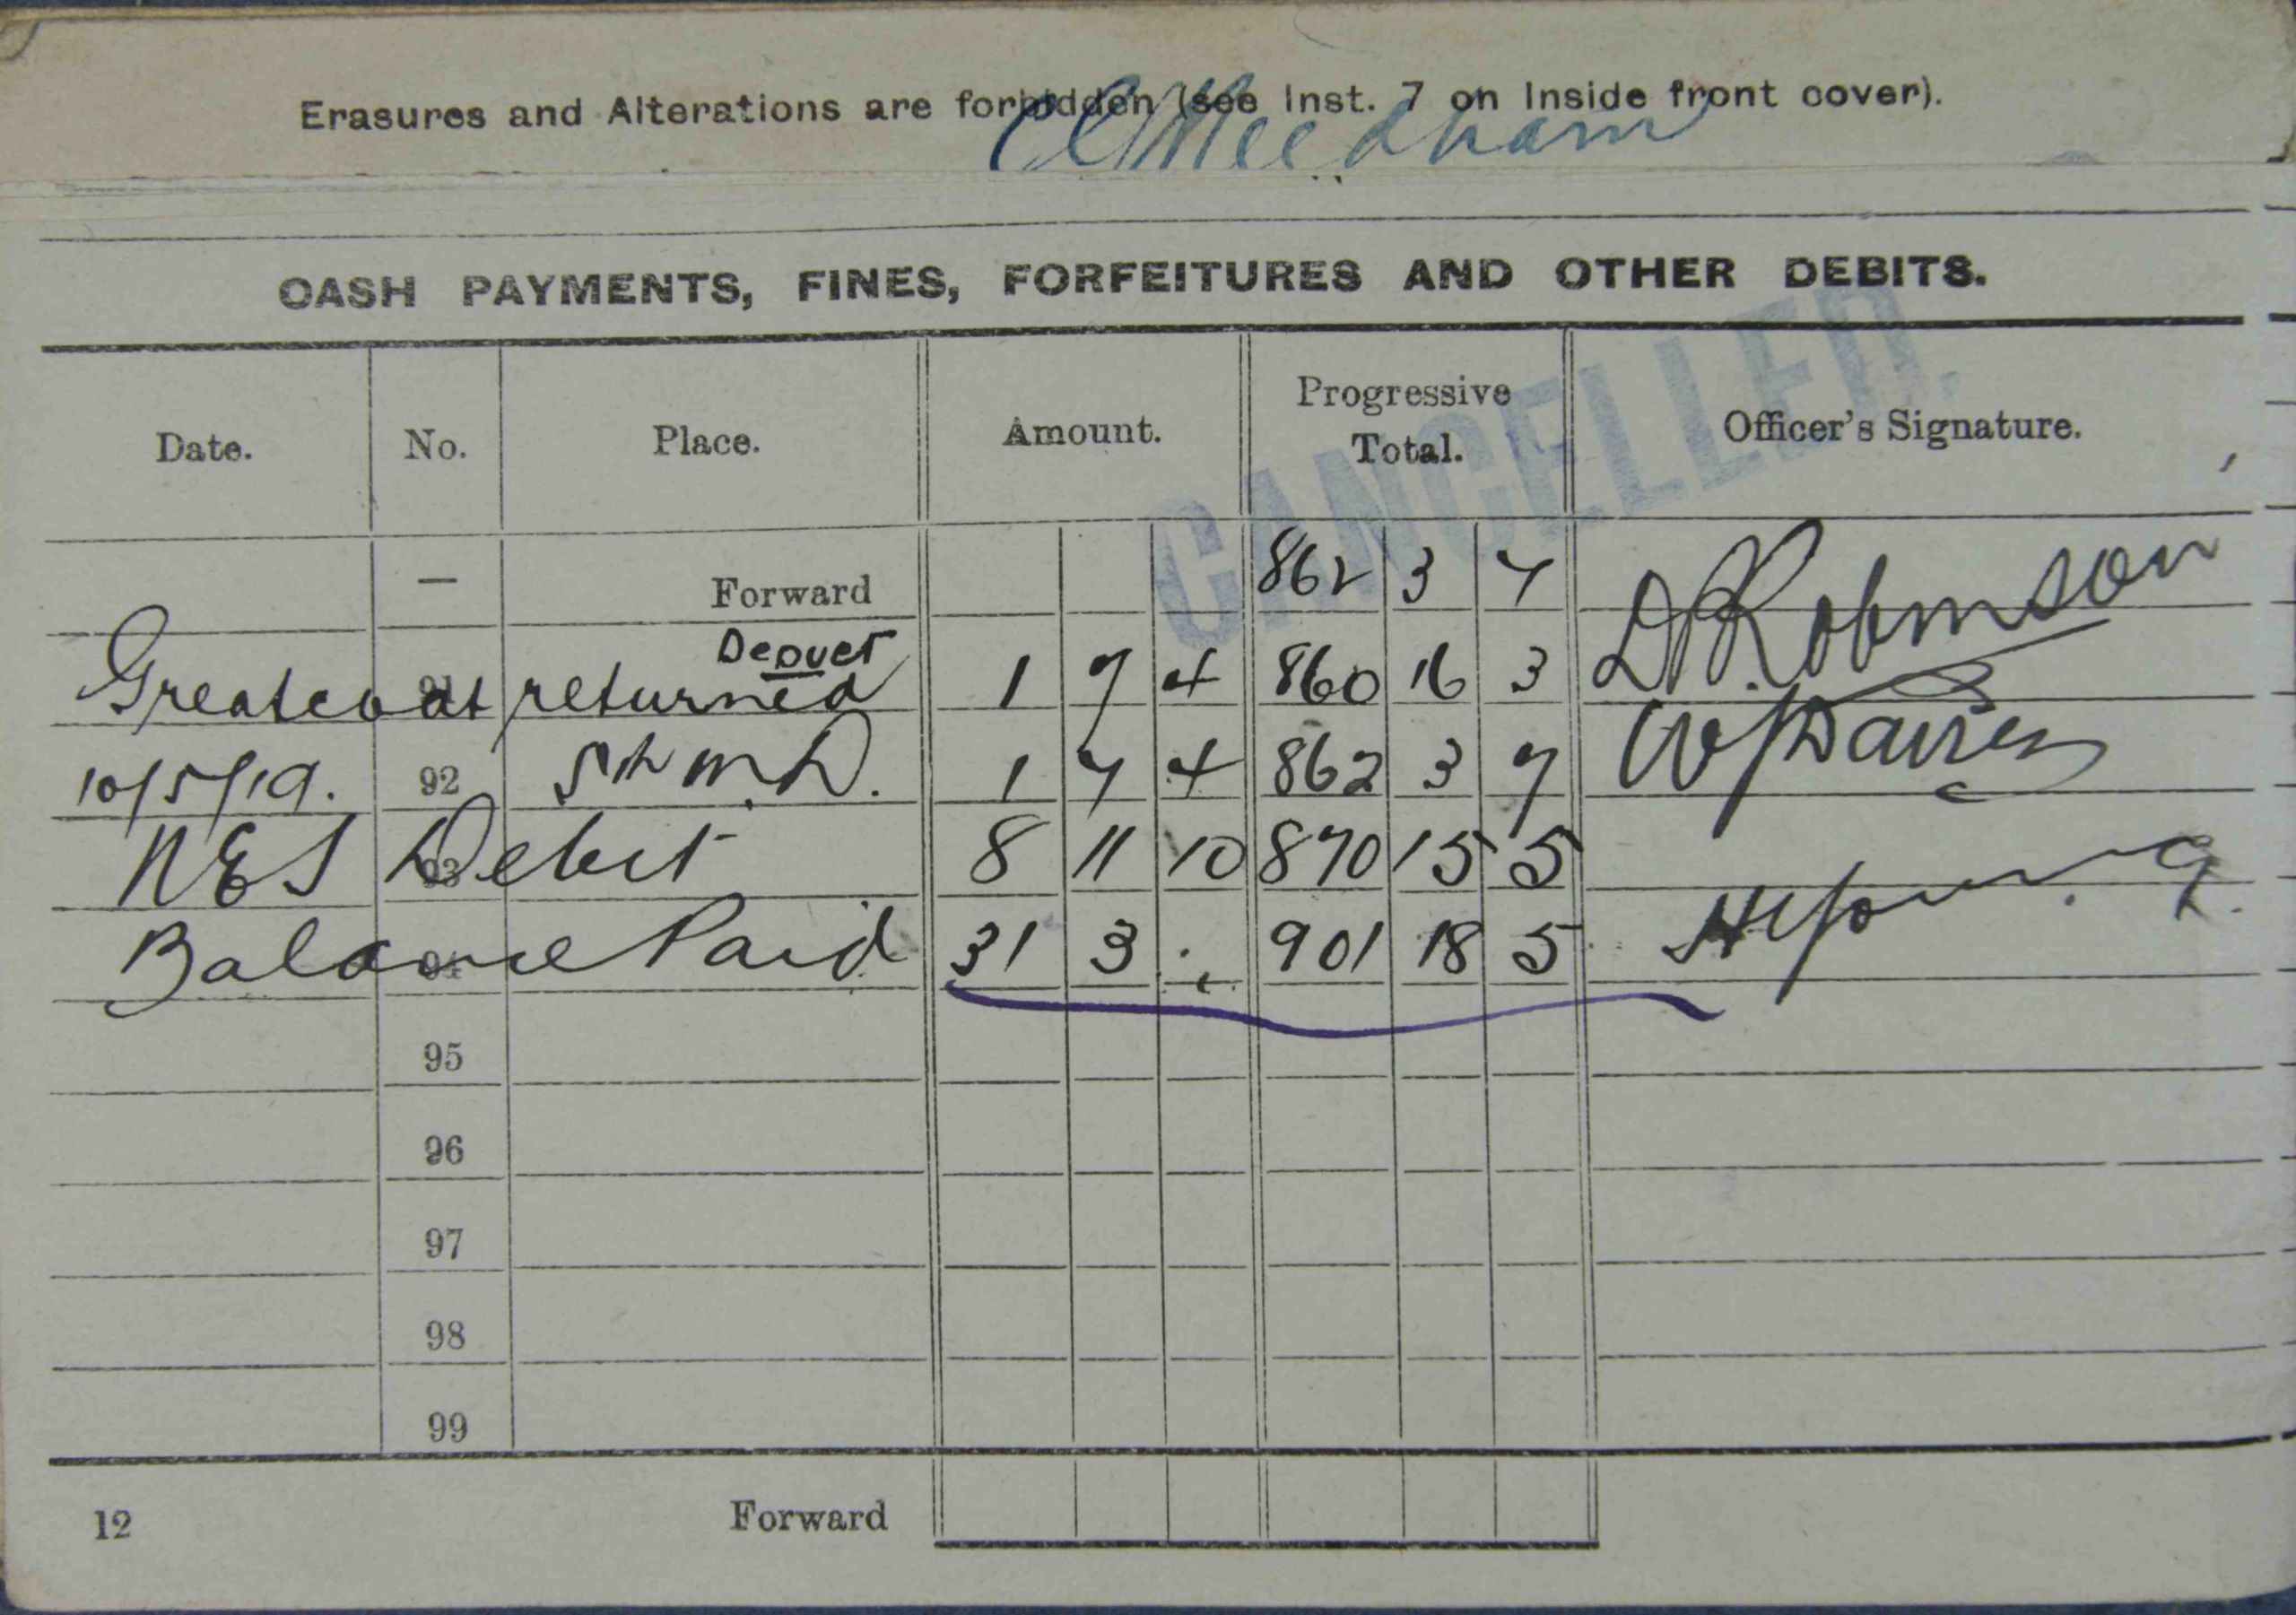 Erasures and Alterations are forbidden (see Inst. 7 on Inside front cover).
Needham
CASH PAYMENTS, FINES, FORFEITURES AND OTHER DEBITS.
CANCELLED.
Date. No. Place. Amount. Progressive Total. Officer's Signature.
— Forward 862 3 7
Depuer
Greatcoat 91 returned 1 7 4 860 16 3 Robinson
10/5/19. 92 5th M.D. 1 7 4 862 3 7 W J Davies
NES Debit 93 8 11 10 870 15 5
Balance Paid 94 31 3 . 901 18 5 H Young
95
96
97
98
99
12 Forward